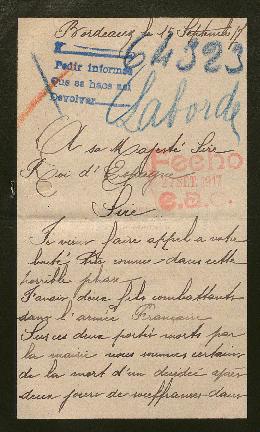 Bordeaux le 15 Septembre 17
64323
Pedir informes
Que se haga así
Devolver
Laborde
A sa Majesté Sire
Roi d'Espagne
Fecho
27 SET. 1917
Sire
Je viens faire appel a votre
bonté, très connue dans cette
horrible phase
J'avais deux fils combattants
dans l'armée Française
Sur ces deux portés morts par
la mairie nous sommes certains
de la mort d'un décédé après
deux jours de souffrances dans